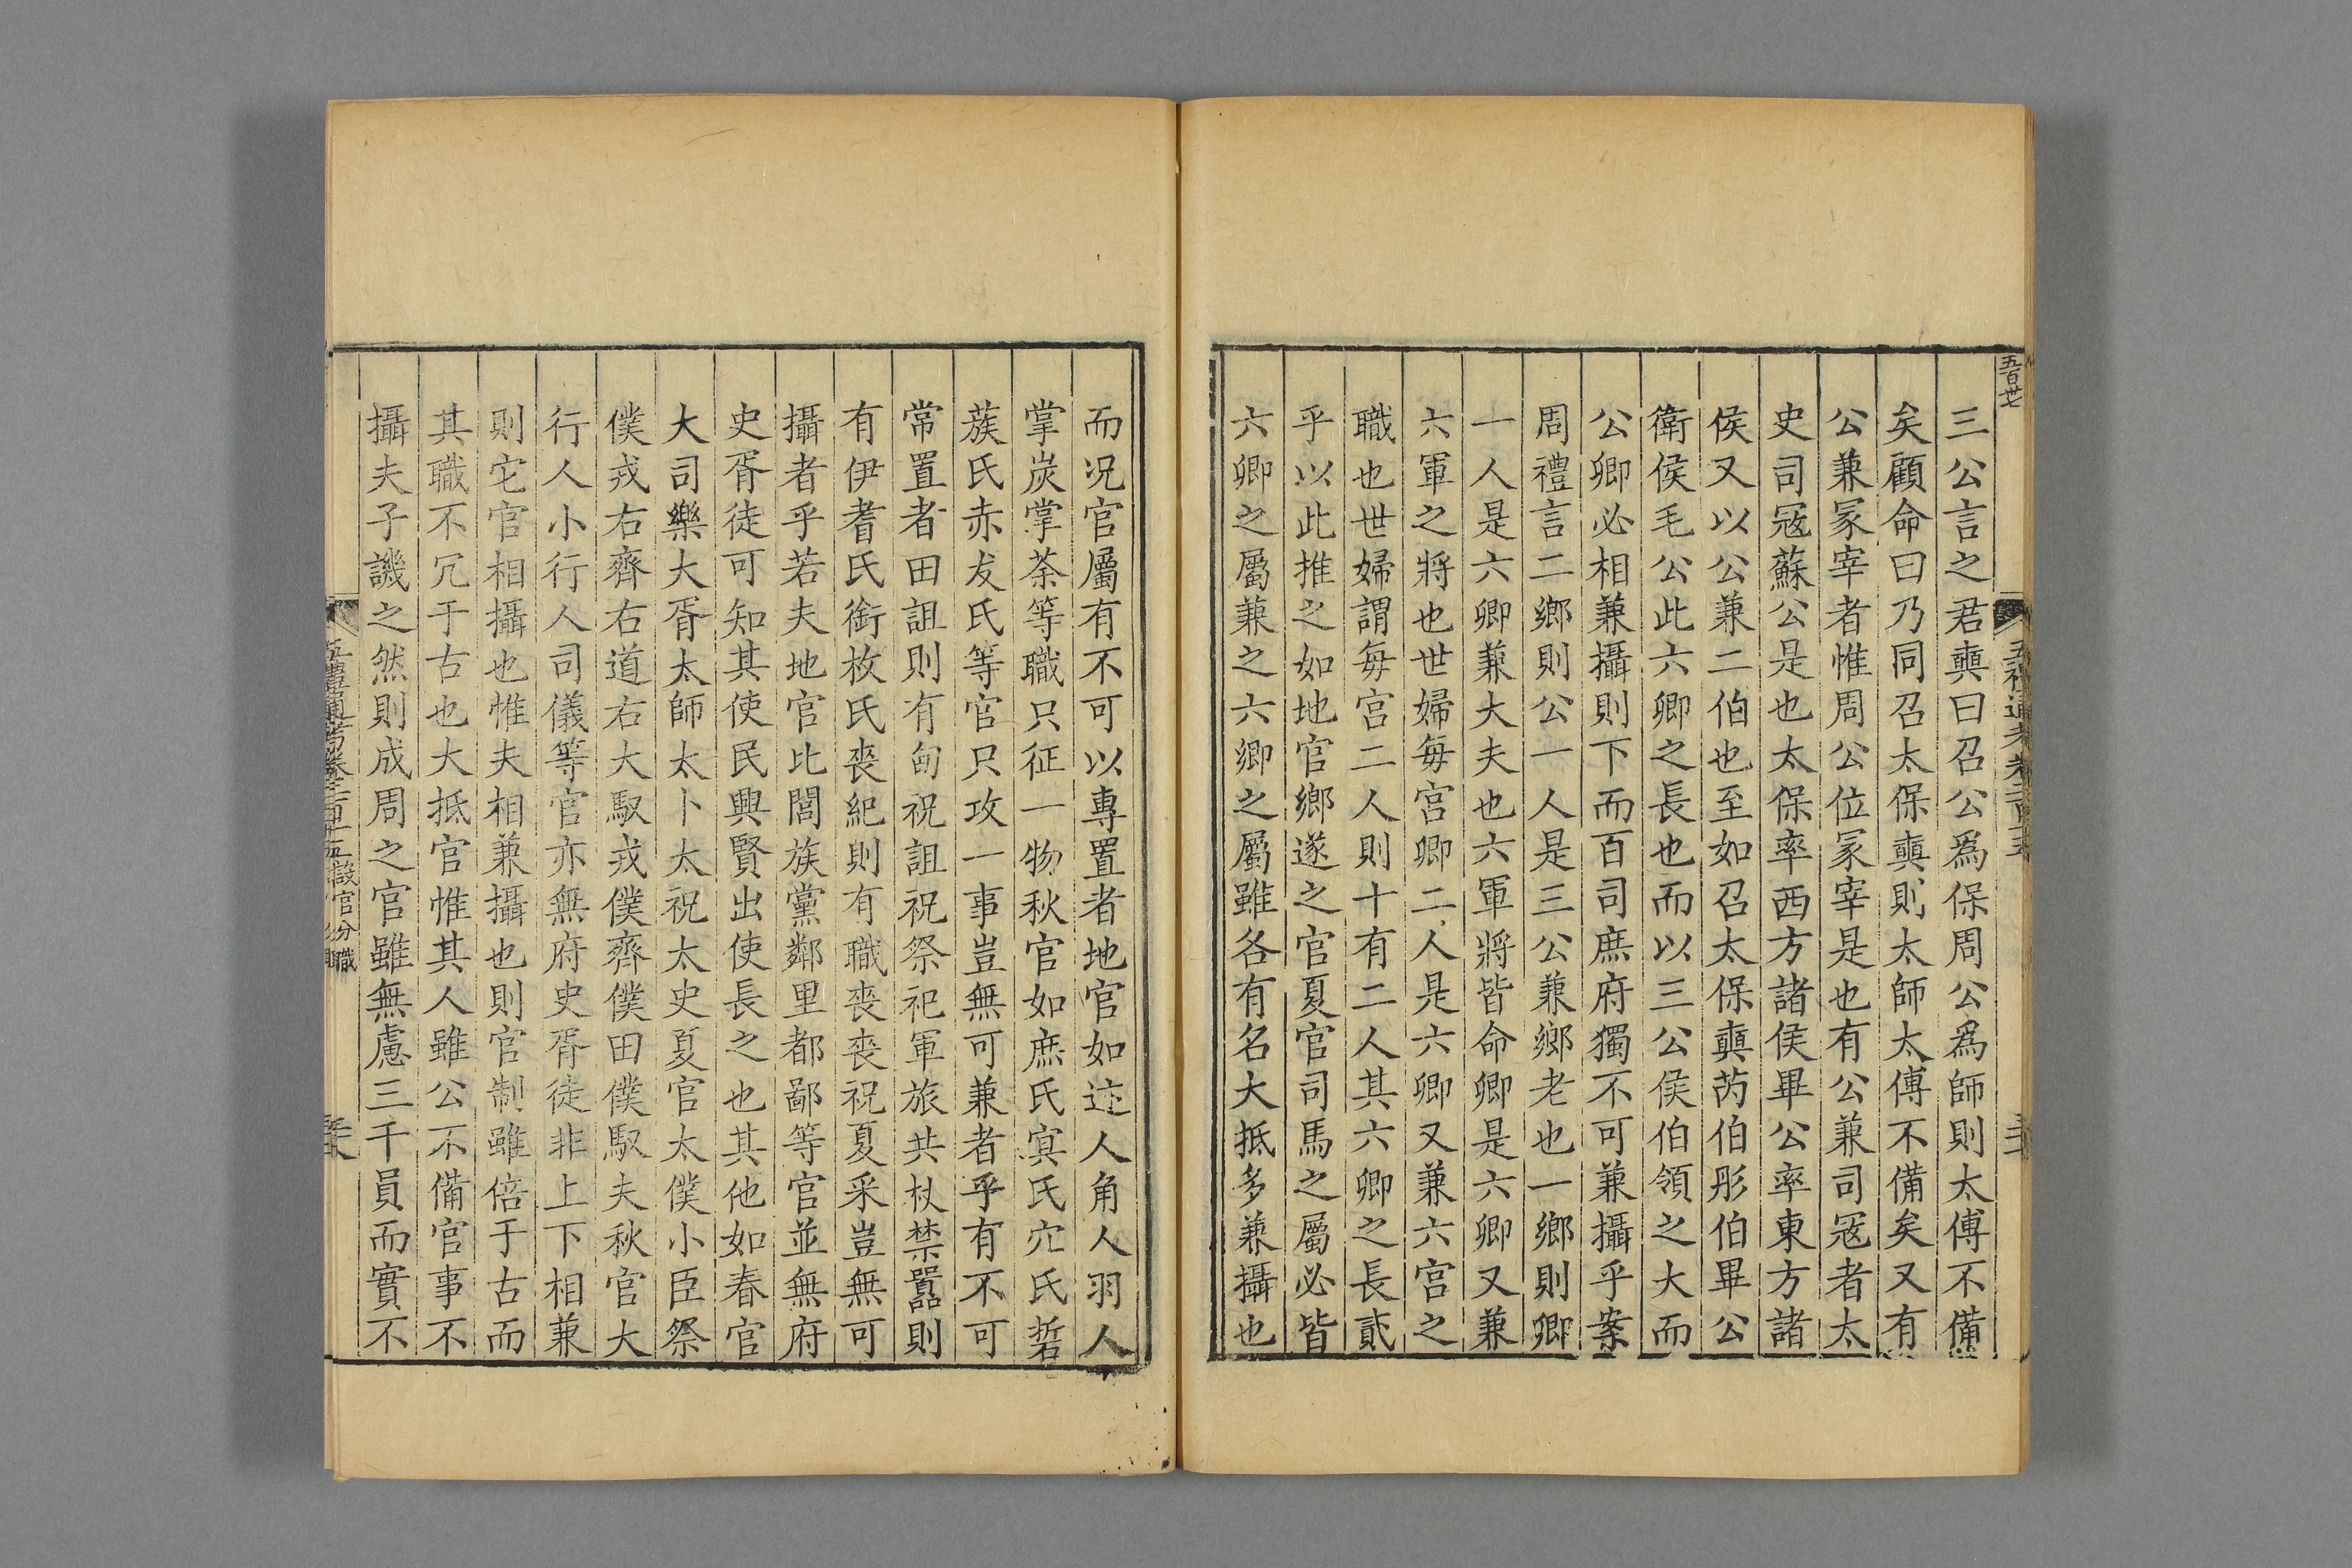 三公言之君奭曰召公爲保周公爲師則太傅不備
矣顧命曰乃同召太保奭則太師太傅不備矣又有
公兼冢宰者惟周公位冢宰是也有公兼司冦者太
史司冦蘇公是也太保率西方諸侯畢公率東方諸
侯又以公兼二伯也至如召太保奭芮伯彤伯畢公
衛侯毛公此六卿之長也而以三公侯伯領之大而
公卿必相兼攝則下而百司庶府獨不可兼攝乎案
周禮言二鄉則公一人是三公兼鄉老也一鄉則卿
一人是六卿兼大夫也六軍將皆命卿是六卿又兼
六軍之將也世婦每宮卿二人是六卿又兼六宮之
職也世婦謂每宮二人則十有二人其六卿之長貳
乎以此推之如地官鄉遂之官夏官司馬之屬必皆
六卿之屬兼之六卿之屬雖各有名大抵多兼攝也
而况官屬有不可以專置者地官如迹人角人羽人
掌炭掌荼等職只征一物秋官如庶氏冥氏穴氏硩
蔟氏赤犮氏等官只攻一事豈無可兼者乎有不可
常置者田詛則有甸祝詛祝祭祀軍旅共杖禁嚚則
有伊耆氏銜枚氏喪紀則有職喪喪祝夏采豈無可
攝者乎若夫地官比閭族黨鄰里都鄙等官並無府
史胥徒可知其使民興賢出使長之也其他如春官
大司樂大胥太師太卜太祝太史夏官太僕小臣祭
僕戎右齊右道右大馭戎僕齊僕田僕馭夫秋官大
行人小行人司儀等官亦無府史胥徒非上下相兼
則宅官相攝也惟夫相兼攝也則官制雖倍于古而
其職不冗于古也大抵官惟其人雖公不備官事不
攝夫子譏之然則成周之官雖無慮三千員而實不
五禮通考卷二百十五設官分職